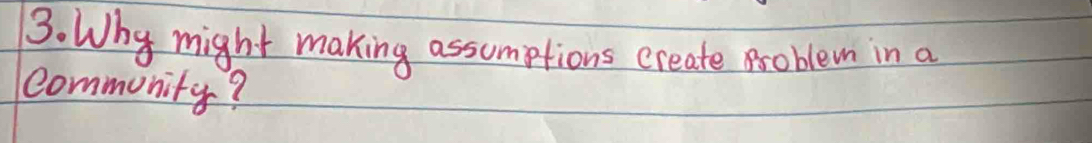 3. Why might making assumptions create problem in a
community?